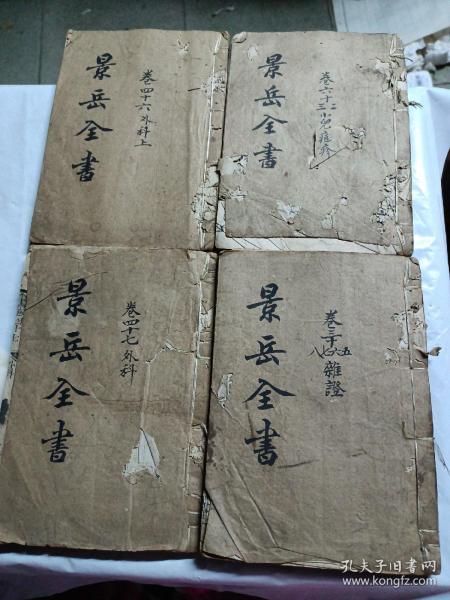 景岳全書
卷四十六外科上
景岳全書
卷六十二三小兒痘疹
景岳全書
卷四十七外科
景岳全書
卷三十五六七八雜證
孔夫子旧书网
www.kongfz.com